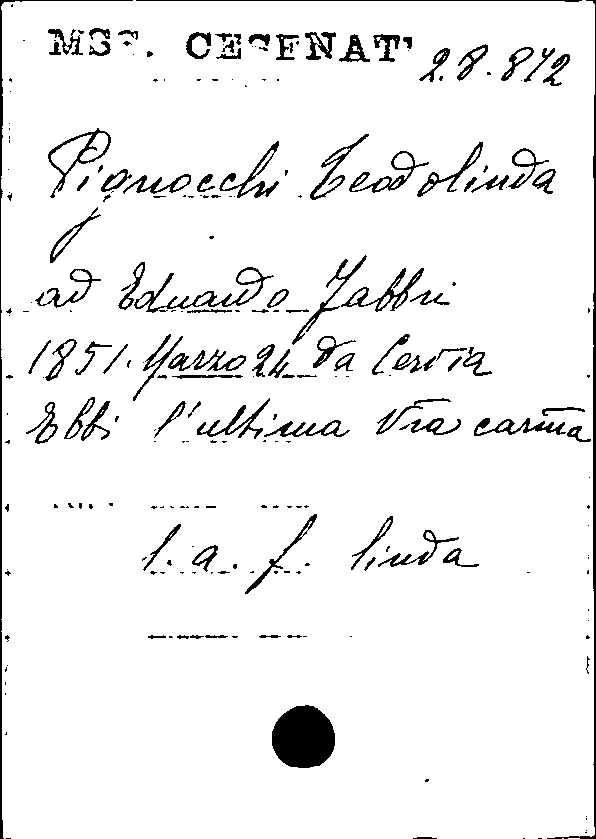 MSS. CESENATI 2.8.872
Pignocchi Teodolinda
ad Eduardo Fabbri
1851. Marzo 24 da Cervia
Ebbi l'ultima V̄ra carm̄a
l. a. f. linda